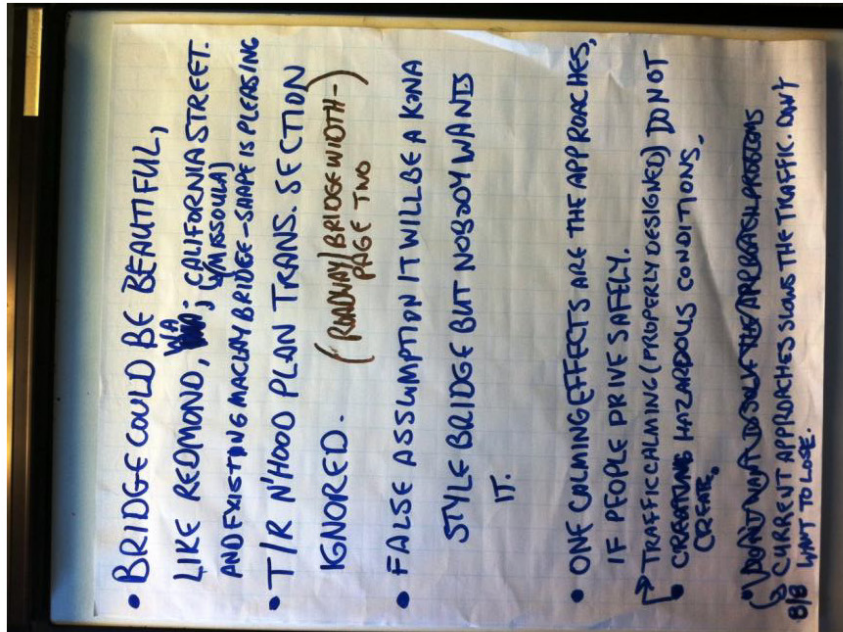 • BRIDGE COULD BE BEAUTIFUL,
LIKE REDMOND, WA; CALIFORNIA STREET.
(MISSOULA)
AND EXISTING MACLAY BRIDGE - SHAPE IS PLEASING
• T/R N'HOOD PLAN TRANS. SECTION
IGNORED. (ROADWAY/BRIDGE WIDTH -
PAGE TWO)
• FALSE ASSUMPTION IT WILL BE A KONA
STYLE BRIDGE BUT NOBODY WANTS
IT.
• ONE CALMING EFFECTS ARE THE APPROACHES,
IF PEOPLE DRIVE SAFELY.
• TRAFFIC CALMING (PROPERLY DESIGNED) DO NOT
CREATING HAZARDOUS CONDITIONS.
CREATE.
• DON'T WANT TO SOLVE THE APPROACH PROBLEMS
CURRENT APPROACHES SLOWS THE TRAFFIC. DON'T
8/8 WANT TO LOSE.